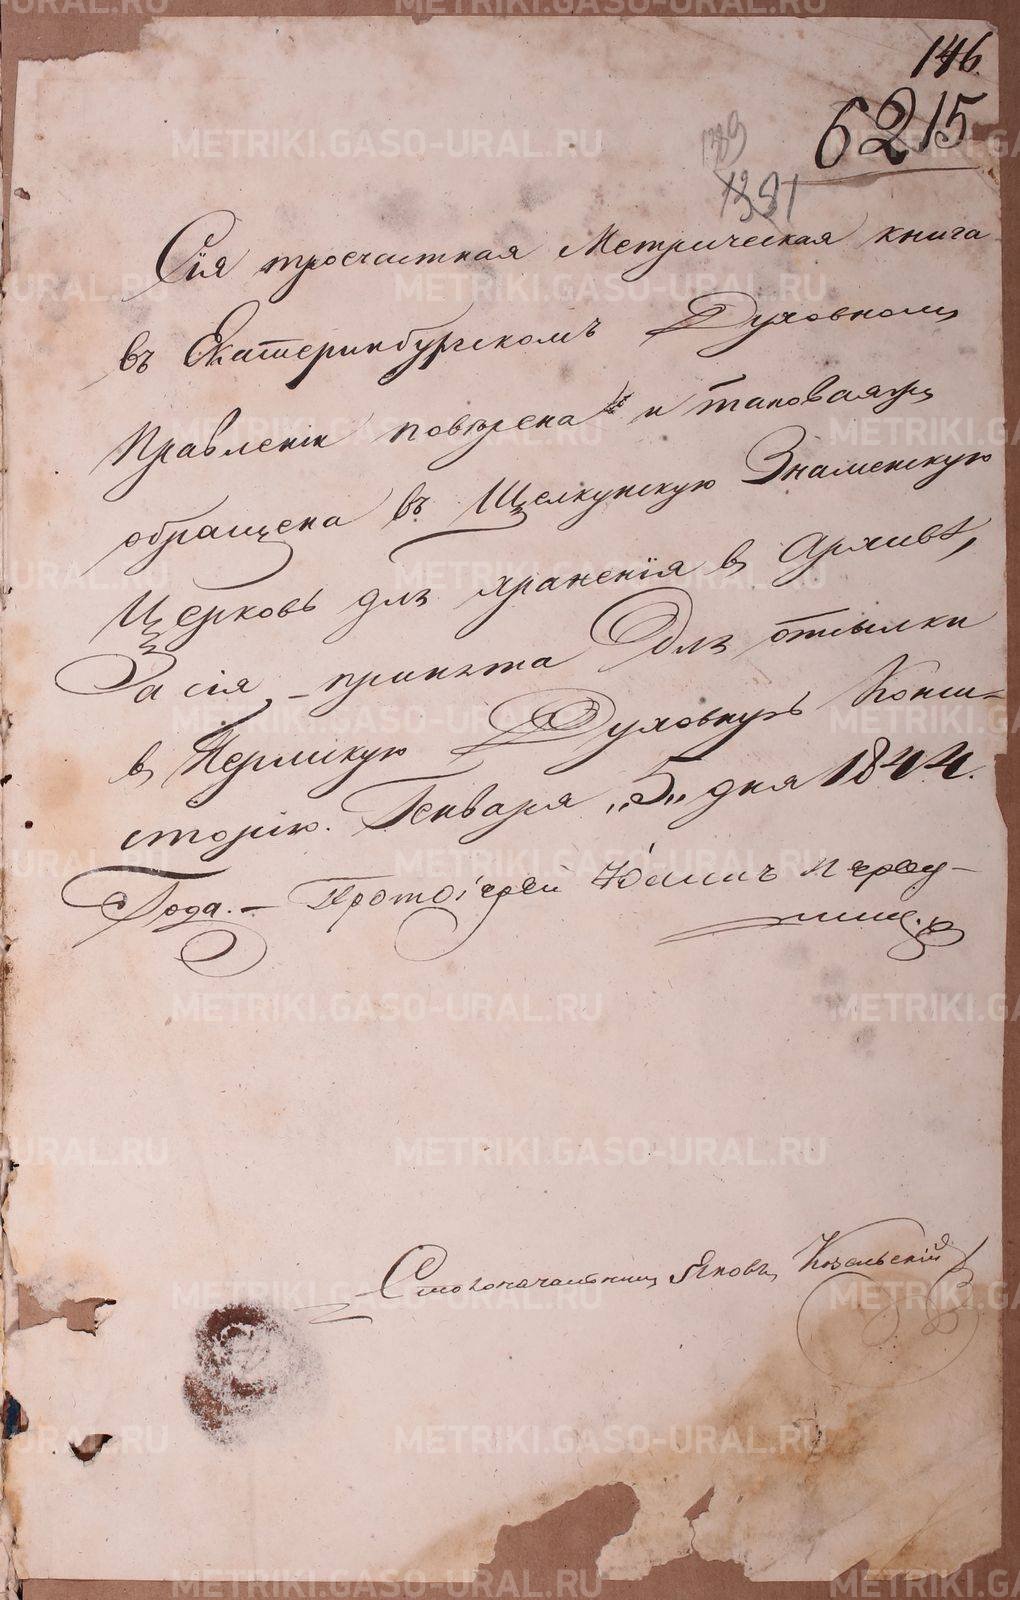 146.
6215
1389
1381
Сія троечастная Метрическая книга
въ Екатеринбургскомъ Духовномъ
Правленіи повѣрена и таковаяжъ
обращена въ Щелкунскую Знаменскую
Церковь для храненія въ Архивѣ,
а сія принята для отсылки
въ Пермскую Духовную Конси-
сторію. Генваря „5„ дня 1844.
Года. – Протоіерей
Столоначальникъ Яковъ Козельскій
METRIKI.GASO-URAL.RU